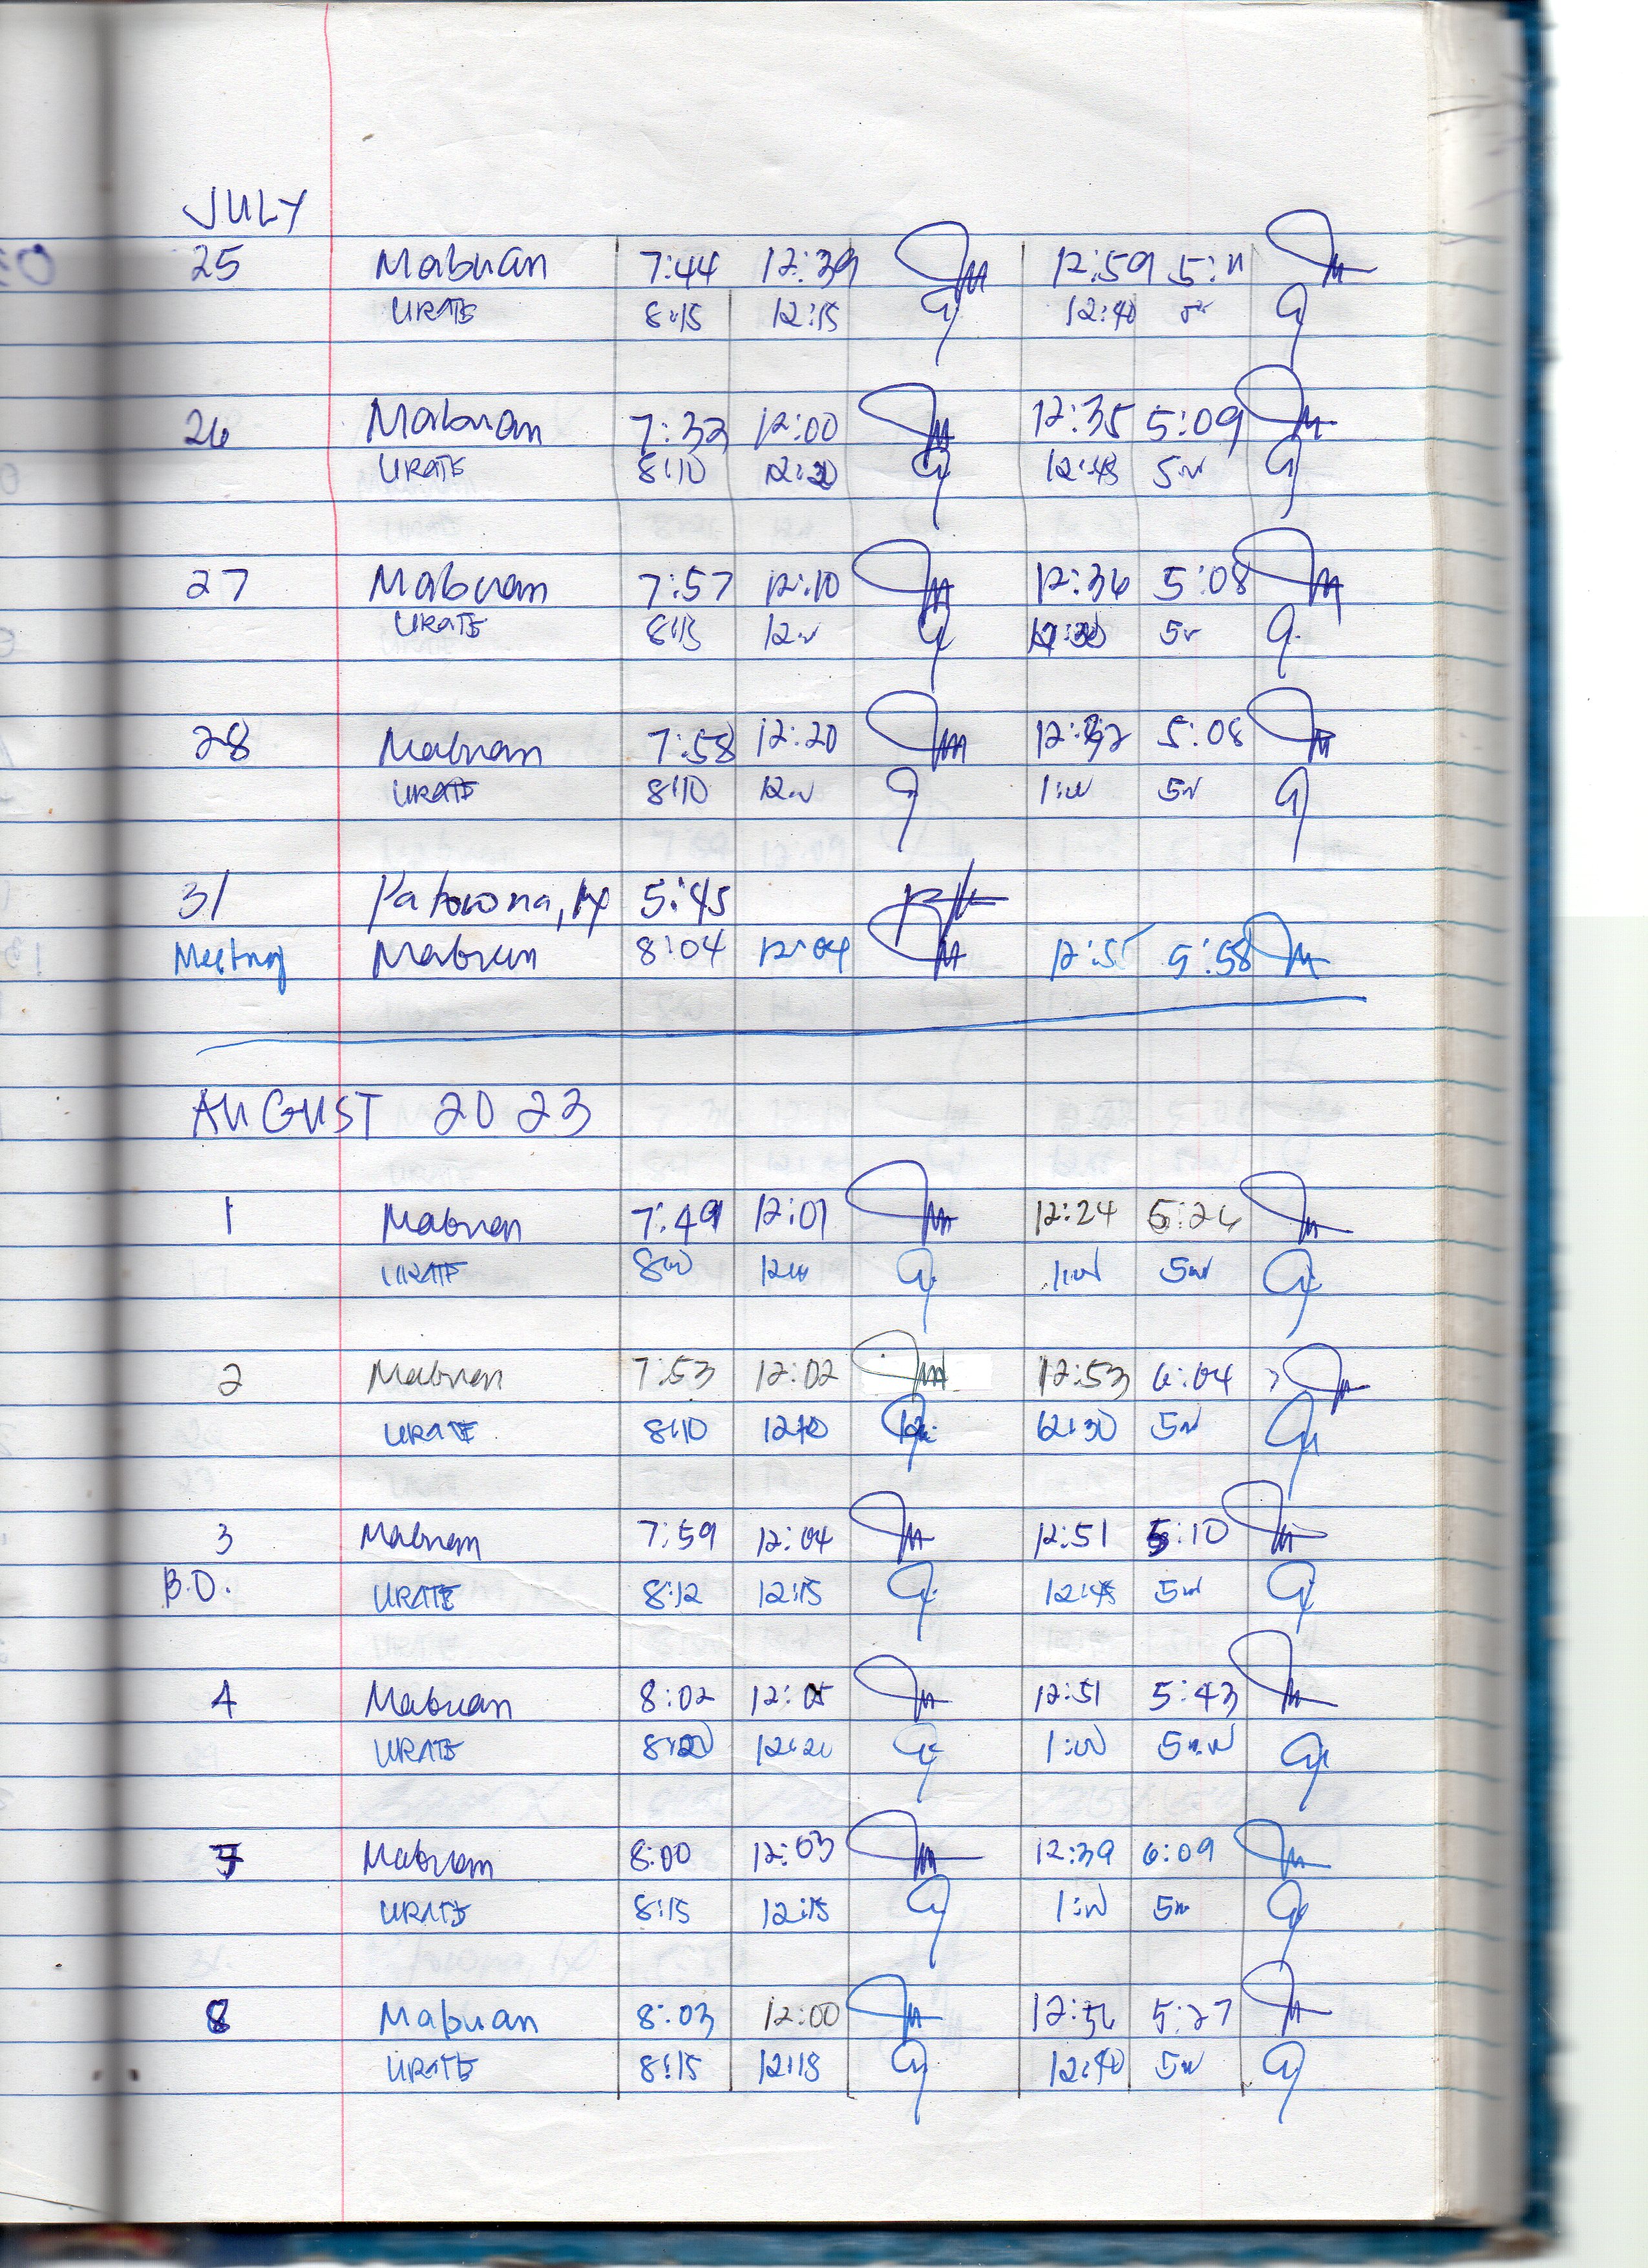 JULY
25 Mabuan 7:44 12:39 12:59 5:11
URATE 8:15 12:15 12:40
26 Mabuan 7:33 12:00 12:35 5:09
URATE 8:10 12:20 12:45
27 Mabuan 7:57 12:10 12:36 5:08
URATE 8:15
28 Mabuan 7:58 12:20 5:08
URATE 8:10
31 5:45
Meeting Mabuan 8:04 12:04 12:55 5:58
AUGUST 2023
1 Mabuan 7:49 12:01 12:24 5:26
URATE
2 Mabuan 7:53 12:02 12:53 6:04
URATE 8:10 12:10 12:30
3 Mabuan 7:59 12:04 12:51 5:10
B.O. URATE 8:12 12:15 12:45
4 Mabuan 8:02 12:05 12:51 5:43
URATE 8:20 12:20 1:00
Mabuan 8:00 12:03 12:39 6:09
URATE 8:15 12:15
8 Mabuan 8:03 12:00 12:56 5:27
URATE 8:15 12:18 12:40